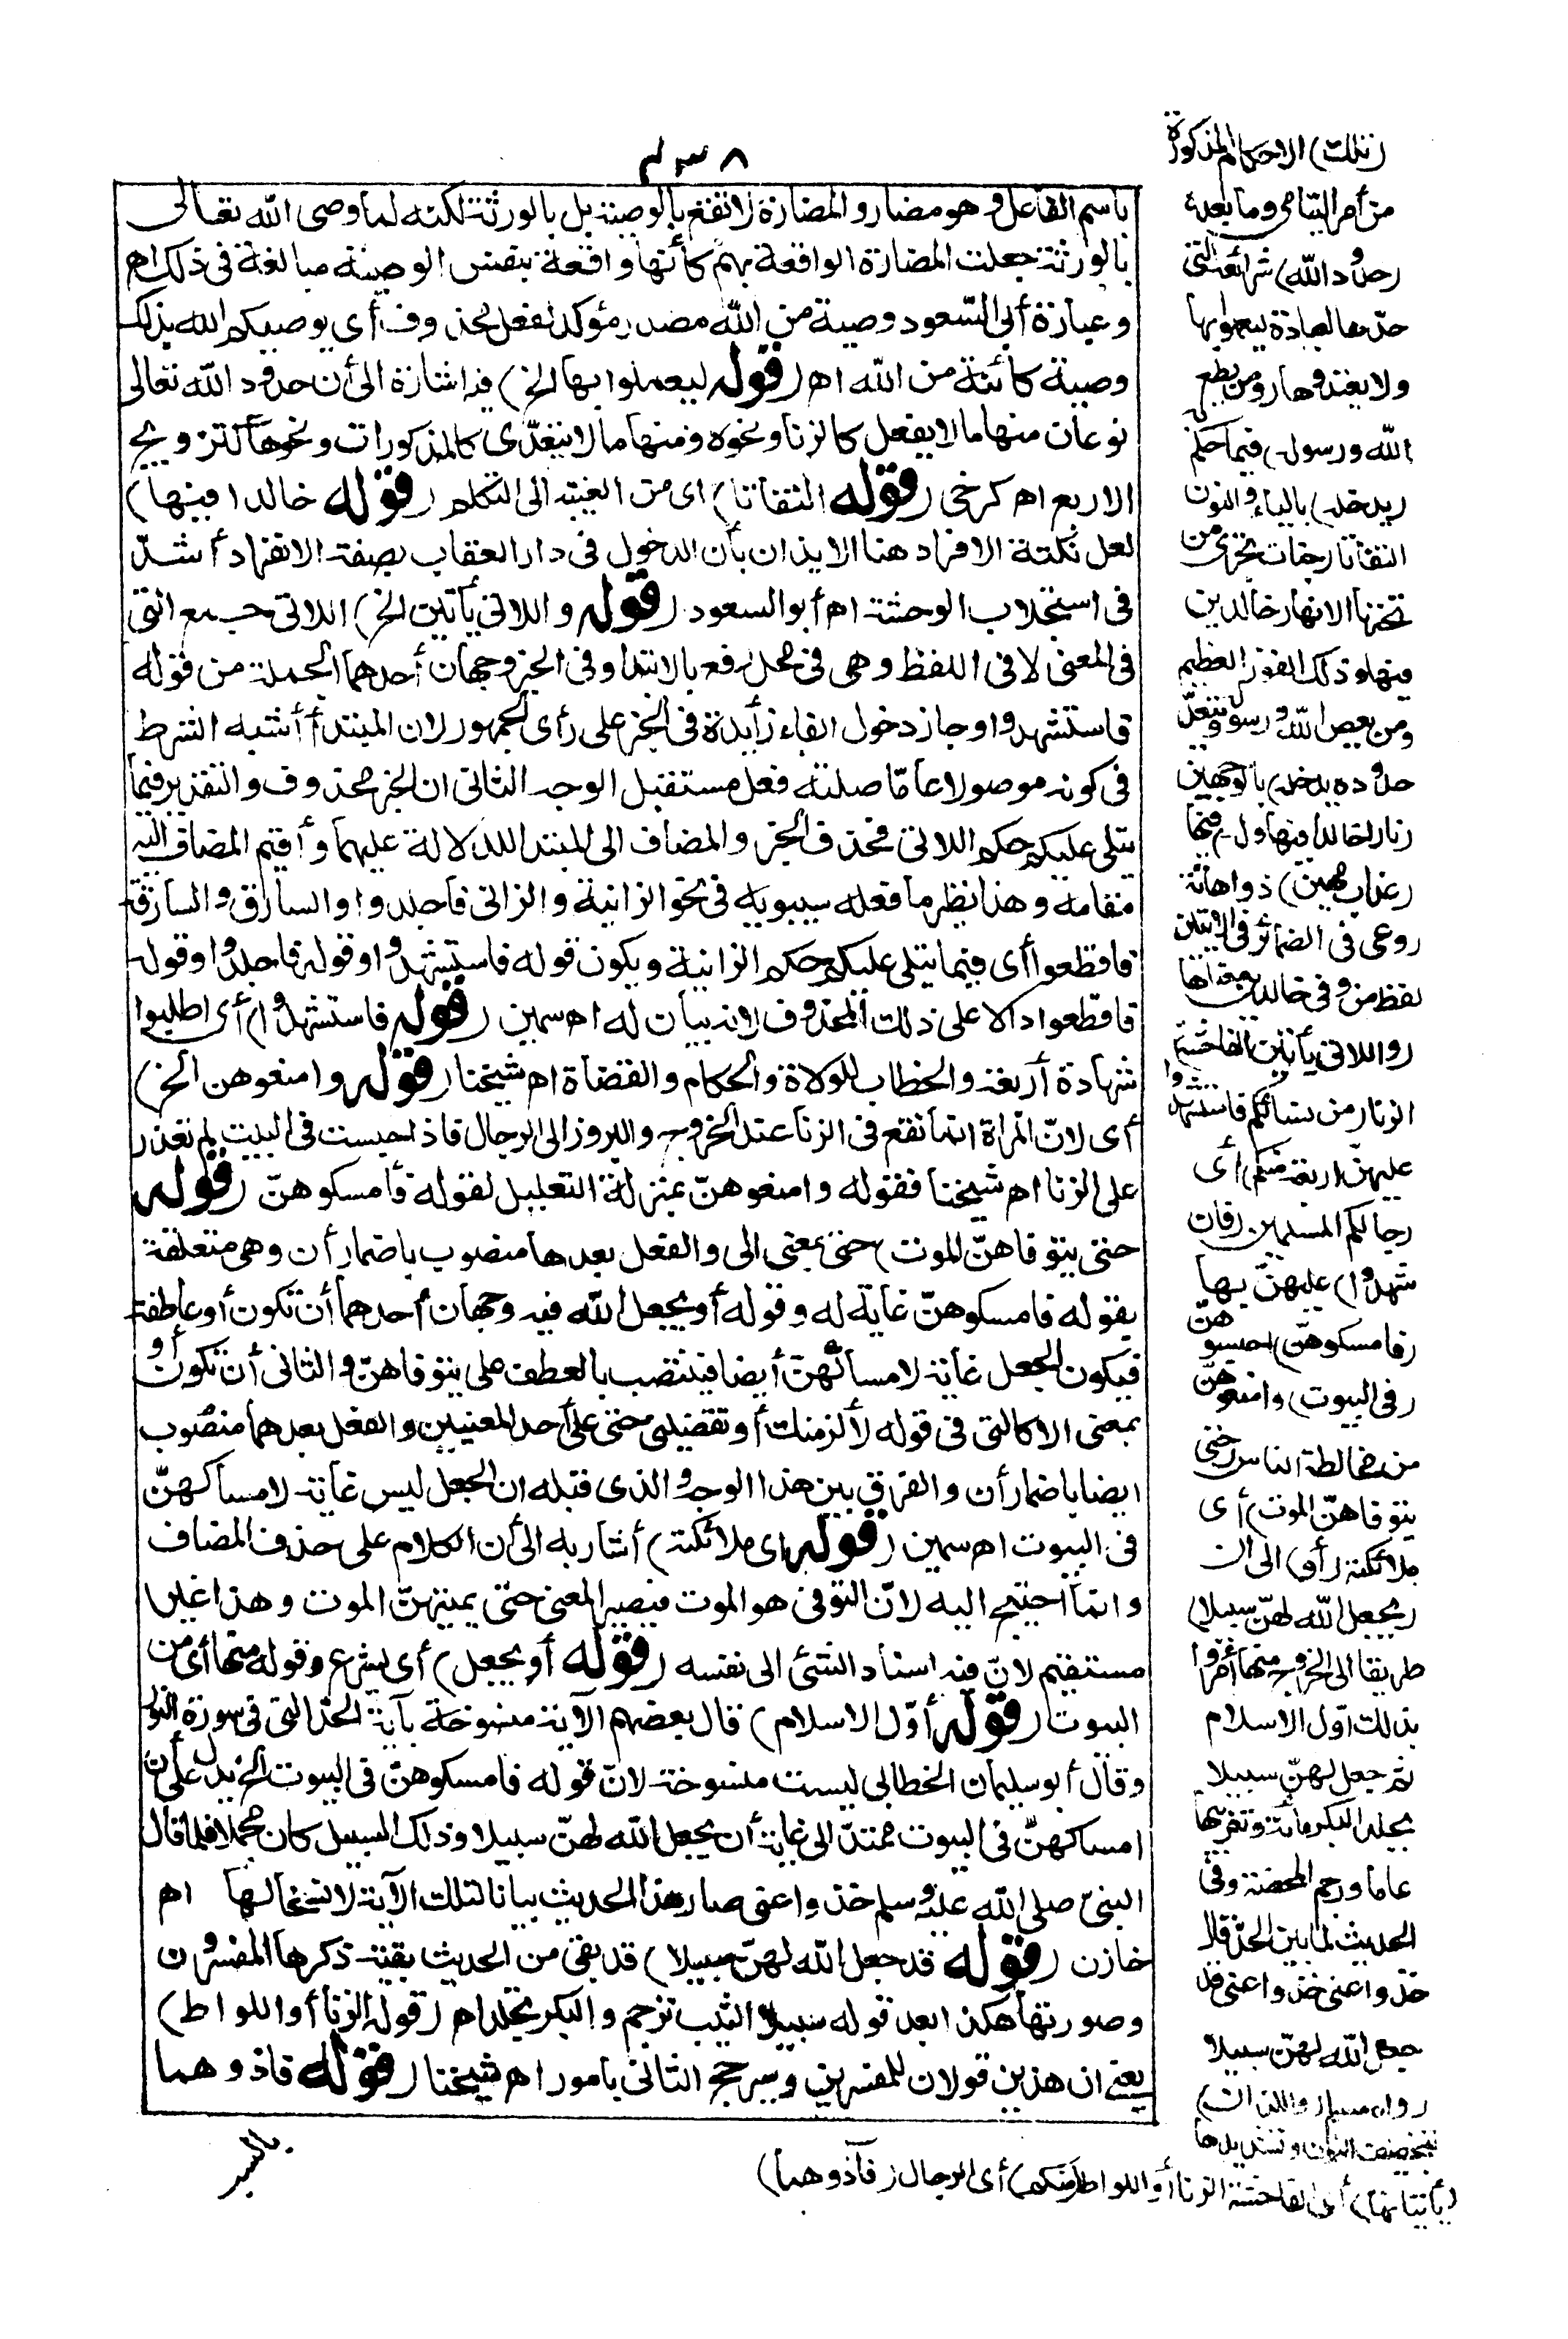 ٤٣٨
باسم الفاعل وهو مضار والمضارة لا تقع بالوصية بل بالورثة لكنه لما وصى الله تعالى
بالورثة جعلت المضارة الواقعة بهم كأنها واقعة بنفس الوصية مبالغة فى ذلك اه
وعبارة أبى السعود وصية من الله مصدر مؤكد لفعل محذوف أى يوصيكم الله بذلك
وصية كائنة من الله اه (قوله ليعملوا بها الخ) فيه اشارة الى أن حدود الله تعالى
نوعان منها ما لا يفعل كالزنا ونحوه ومنها ما لا يتعدّى كالمذكورات ونحوها كتزويج
الاربع اه كرخى (قوله التفاتا) اى من الغيبة الى التكلم (قوله خالدا فيها)
لعل نكتة الافراد هنا الايذان بأن الدخول فى دار العقاب بصفة الانفراد أشدّ
فى استجلاب الوحشة اه أبو السعود (قوله واللاتى يأتين الخ) اللاتى جمع التى
فى المعنى لا فى اللفظ وهى فى محل رفع بالابتداء وفى الخبر وجهان أحدهما الجملة من قوله
فاستشهدوا وجاز دخول الفاء زائدة فى الخبر على رأى الجمهور لان المبتدأ أشبه الشرط
فى كونه موصولا عامّا صلته فعل مستقبل الوجه الثانى ان الخبر محذوف والتقدير فيما
يتلى عليكم حكم اللاتى فحذف الخبر والمضاف الى المبتدا للدلالة عليهما وأقيم المضاف اليه
مقامه وهذا نظير ما فعله سيبويه فى نحو الزانية والزانى فاجلدوا والسارق والسارقة
فاقطعوا أى فيما يتلى عليكم حكم الزانية ويكون قوله فاستشهدوا وقوله فاجلدوا وقوله
فاقطعوا دالا على ذلك المحذوف لانه بيان له اه سمين (قوله فاستشهدوا) أى اطلبوا
شهادة أربعة والخطاب للولاة والحكام والقضاة اه شيخنا (قوله وامنعوهن الخ)
أى لانّ المرأة انما تقع فى الزنا عند الخروج والبروز الى الرجال فاذا حبست فى البيت لم تقدر
على الزنا اه شيخنا فقوله وامنعوهنّ بمنزلة التعليل لقوله فأمسكوهنّ (قوله
حتى يتوفاهنّ الموت) حتى بمعنى الى والفعل بعدها منصوب باضمار أن وهى متعلقة
بقوله فامسكوهنّ غاية له وقوله أو يجعل الله فيه وجهان أحدهما أن تكون أو عاطفة
فيكون الجعل غاية لامساكهنّ أيضا فينتصب بالعطف على يتوفاهنّ والثانى أن تكون أو
بمعنى الا كالتى فى قوله لألزمنك أو تقضينى حقى على أحد المعنيين والفعل بعدهما منصوب
ايضا باضمار أن والفرق بين هذا الوجه والذى قبله ان الجعل ليس غاية لامساكهنّ
فى البيوت اه سمين (قوله اى ملائكته) أشار به الى أن الكلام على حذف المضاف
وانما احتيج اليه لانّ التوفى هو الموت فيصير المعنى حتى يميتهنّ الموت وهذا غير
مستقيم لانّ فيه اسناد الشئ الى نفسه (قوله أو يجعل) أى يشرع وقوله منها أى من
البيوت (قوله أوّل الاسلام) قال بعضهم الآية منسوخة بآية الحدّ التى فى سورة النور
وقال أبو سليمان الخطابى ليست منسوخة لانّ قوله فامسكوهنّ فى البيوت الخ يدل على أن
امساكهنّ فى البيوت ممتدّ الى غاية أن يجعل الله لهنّ سبيلا وذلك السبيل كان مجملا فلما قال
النبىّ صلى الله عليه وسلم خذوا عنى صار هذا الحديث بيانا لتلك الآية لا نسخا لها اه
خازن (قوله قد جعل الله لهنّ سبيلا) قد بقى من الحديث بقية ذكرها المفسرون
وصورتها هكذا بعد قوله سبيلا الثيب ترجم والبكر تجلد اه (قوله الزنا أو اللواط)
يعنى ان هذين قولان للمفسرين وسيرجح الثانى بامور اه شيخنا (قوله فاذوهما
بالسب
(تلك) الاحكام المذكورة
من أمر اليتامى وما بعده
(حدود الله) شرائعه التى
حدّها لعباده ليعملوا بها
ولا يعتدوها (ومن يطع
الله ورسوله) فيما حكم به
(يدخله) بالياء والنون
التفاتا (جنات تجرى من
تحتها الانهار خالدين
فيها وذلك الفوز العظيم
ومن يعص الله ورسوله ويتعدّ
حدوده يدخله) بالوجهين
(نارا خالدا فيها وله) فيها
(عذاب مهين) ذو اهانة
روعى فى الضمائر فى الآيتين
لفظ من وفى خالدين معناها
(واللاتى يأتين الفاحشة)
الزنا (من نسائكم فاستشهدوا
عليهنّ أربعة منكم) أى
رجالكم المسلمين (فان
شهدوا) عليهنّ بها
(فامسكوهنّ) احبسوهنّ
(فى البيوت) وامنعوهنّ
من مخالطة الناس (حتى
يتوفاهنّ الموت) أى
ملائكته (أو) الى أن
(يجعل الله لهنّ سبيلا)
طريقا الى الخروج منها أمروا
بذلك اوّل الاسلام
ثم جعل لهنّ سبيلا
بجلد البكر مائة وتغريبها
عاما ورجم المحصنة وفى
الحديث لما بين الحدّ قال
خذوا عنى خذوا عنى قد
جعل الله لهنّ سبيلا
رواه مسلم (واللذان)
بتخفيف النون وتشديدها
(يأتيانها) أى الفاحشة الزنا أو اللواط (منكم) أى الرجال (فآذوهما)